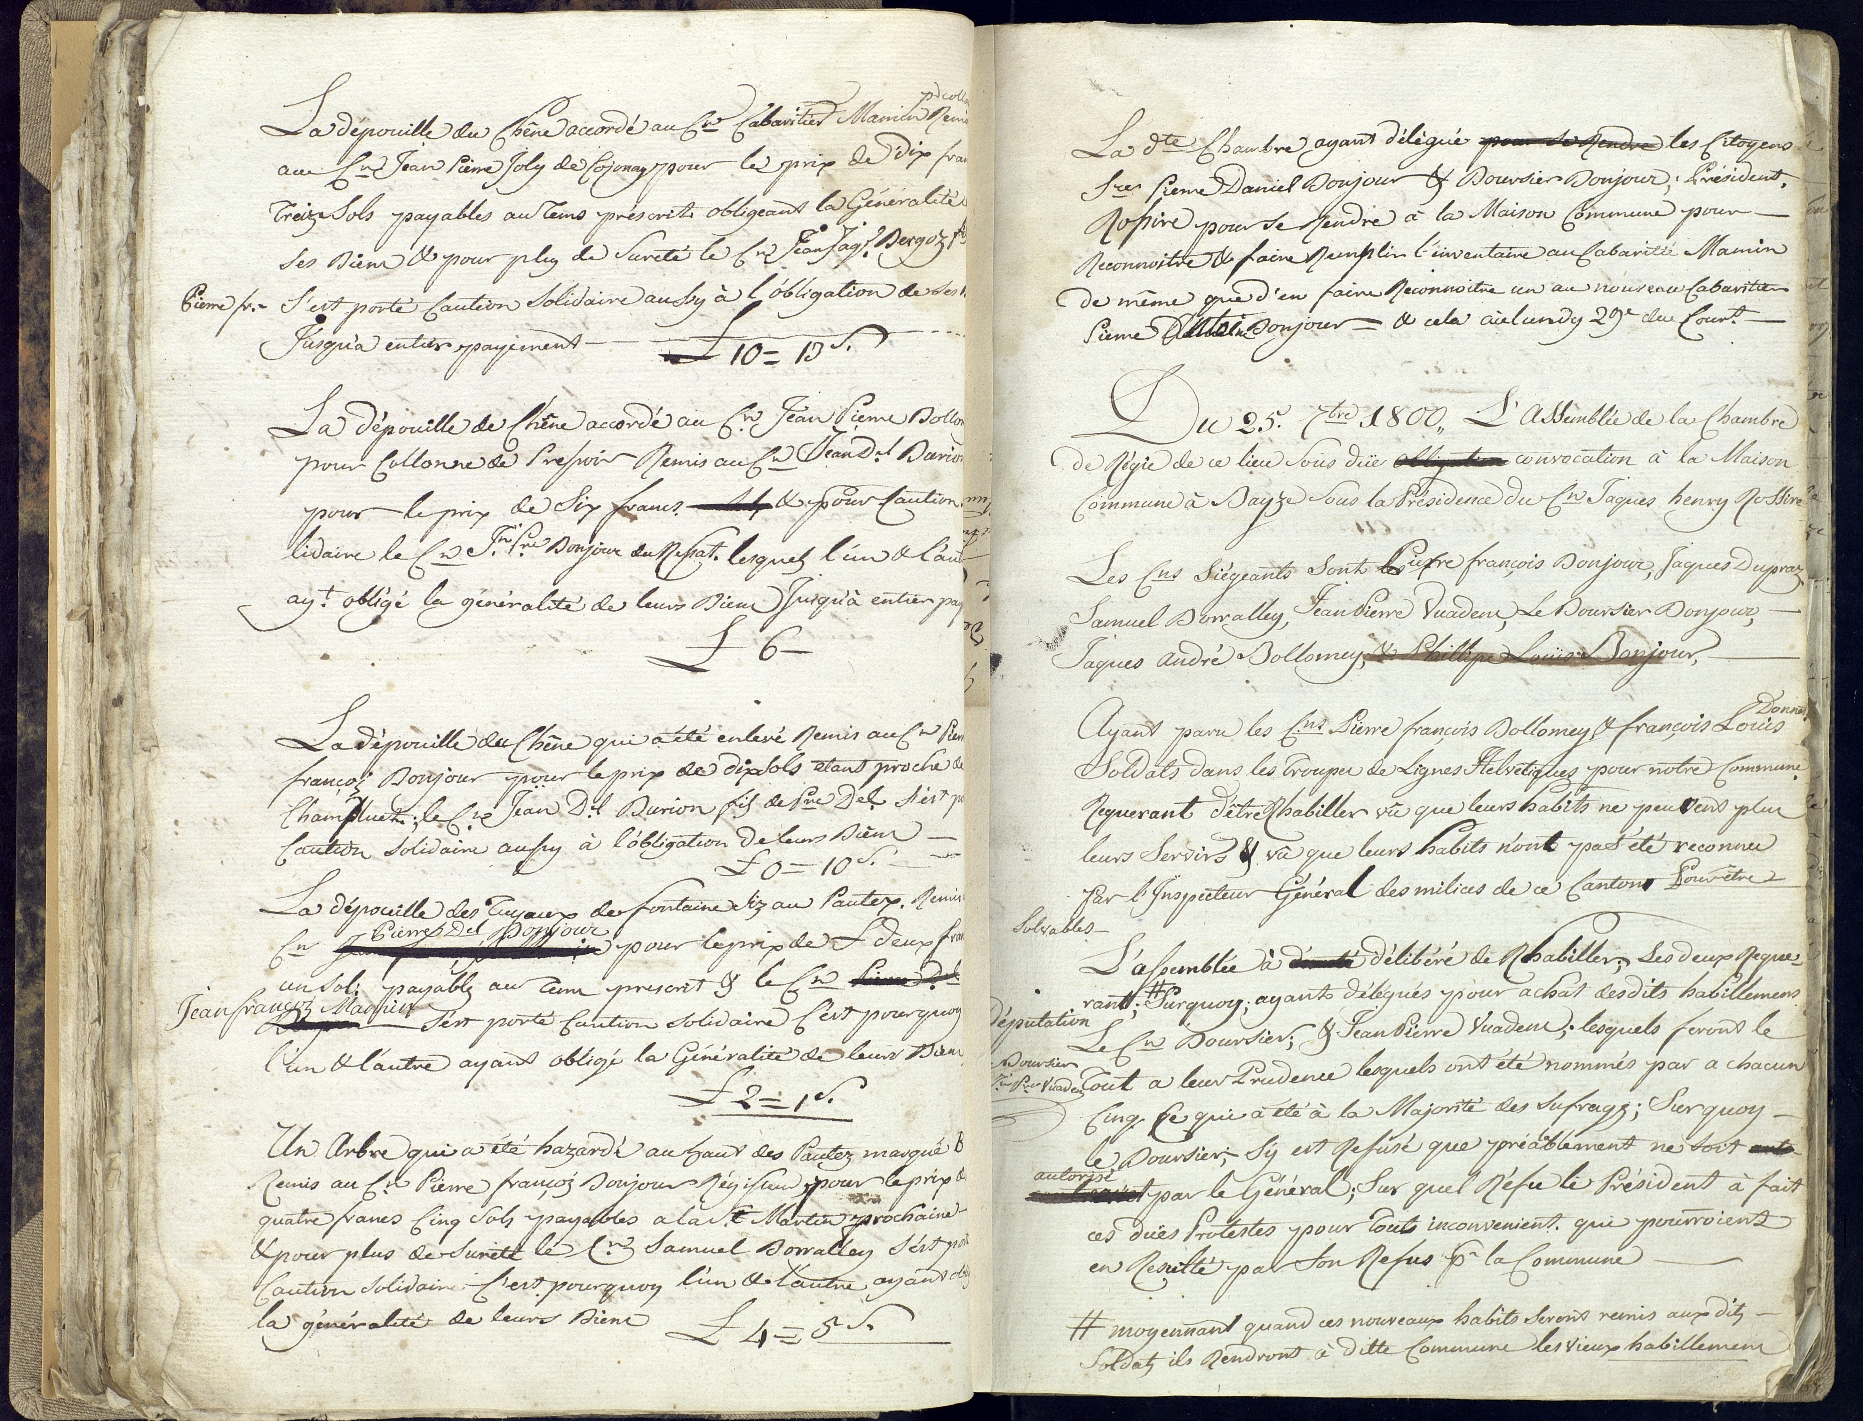 La dépouille du Chêne accordé au Cn Cabaritier Mamin Remis
au Cn Jean Pierre Joly de Cojonay pour le prix de dix fran
Treize Sols payables au Tems préscrit obligeant la Généralité
Ses Biens & pour plus de Sureté le Cn Jean Jaq.s Bergoz
Pierre fr.s S'est porté Caution Solidaire aussy à l'obligation de Ses
Jusqu'à entier payement
£ 10 = 13 S.
La dépouille de Chêne accordé au Cn Jean Pierre Bollom
pour Collonne de Pressoir Remis au Cn Jean D.l Burion
pour le prix de Six francs & pour Caution
lidaire le Cn Jn Pre Bonjour du Ressat. lesquels l'un & l'aut
ay.t obligé la généralité de leurs Biens Jusqu'à entier pay
£ 6 -
La dépouille du Chêne qui a été enlevé Remis au Cn Pierr
françoiz Bonjour pour le prix de dix Sols étant proche de
Champluet; le Cn Jean D.l Burion fils de Pre Del. S'ést po
Caution Solidaire aussy à l'obligation de leurs Biens
£ 0 = 10 S.
La dépouille des Tuyaux de fontaine Siz au Pautex. Remis
Pierre Del Bonjour
Cn pour le prix de £ deux fran
un Sol; payables au Tems prescrit & le Cn Pierre D.l
Jean françoiz Mamin
S'ést porté Caution Solidaire C'ést pourquoy
l'un & l'autre ayant obligé la Généralité de leurs Biens
£ 2 = 1 S.
Un Arbre qui a été hazardé au haut des Pautex marqué B
Remis au Cn Pierre françoiz Bonjour Régisseur pour le prix de
quatre francs Cinq Sols payables a la S.t Martin prochaine
& pour plus de Sureté le Cn Samuel Dovalley S'ést port
Caution Solidaire C'est pourquoy l'un & l'autre ayant obli
la généralité de leurs Biens £ 4 = 5 S.
La dte Chambre ayant délégué pour se Rendre les Citoyens
Pierre Daniel Bonjour & Boursier Bonjour; Président
Rossire pour Se Rendre à la Maison Commune pour
Reconnoitre & faire Remplir l'inventaire au Cabaritié Mamin
de même que d'en faire Reconnoitre un au nouveau Cabaritier
Pierre Bonjour = & cela ce lundy 29e du Court.
Du 25. 7bre 1800,, L'Assemblée de la Chambre
de Régie de ce lieu Sous düe Obligation convocation à la Maison
Commune à Bayze Sous la Présidence du Cn Jaques henry Rossire
Les Cns Siégeants Sont Pierre françois Bonjour, Jaques Dupraz
Samuel Dovalley, Jean Pierre Vuadens, Le Boursier Bonjour,
Jaques André Bollomey, & Phillipe Louis Bonjour,
Ayant paru les Cns Pierre françois Bollomey, & françois Louis Donnet
Soldats dans les Troupes de Lignes Helvétiques pour nôtre Commune
Requerant d'étre Rhabiller vû que leurs habits ne peuvent plus
leurs Servirs & vû que leurs habits n'ont pas été reconnu
par l'Inspecteur Général des milices de ce Canton Pour être
Solvables
L'assemblée à délibéré de Rhabiller, Les deux Reque-
rant; # Surquoy; ayants délégués pour achat desdits habillemens
députation
Le Cn Boursier; & Jean Pierre Vuadens; lesquels feront le
Boursier
Jn Pre Vuadens Tout a leur Prudence lesquels ont été nommés par a chacun
Cinq Ce qui a été à la Majorité des Sufrages; Surquoy
le Boursier, Sy est Refusé que préablement ne Soit
autorisé
par le Général; Sur quel Réfu le Président à fait
ces dües Protestes pour Touts inconvenient. qui pourroient
en Résulté par Son Refus pr la Commune
# moyennant quand ces nouveaux habits Seront remis aux dits
Soldats ils Rendront à ditte Commune les vieux habillemens